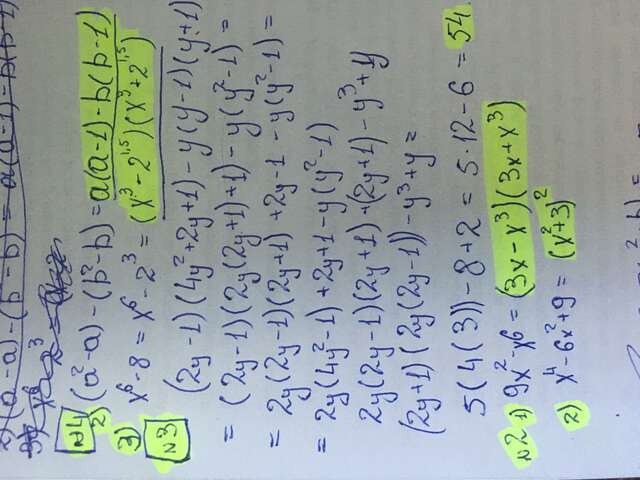 2) (a²-a)-(b²-b) = a(a-1)-b(b-1)
№4
2) (a²-a)-(b²-b) = a(a-1)-b(b-1)
3) x⁶-8 = x⁶-2³ = (x³-2^1,5)(x³+2^1,5)
№3 (2y-1)(4y²+2y+1)-y(y-1)(y+1) =
= (2y-1)(2y(2y+1)+1)-y(y²-1) =
= 2y(2y-1)(2y+1)+2y-1-y(y²-1) =
= 2y(4y²-1)+2y+1-y(y²-1)
2y(2y-1)(2y+1)+(2y+1)-y³+y
(2y+1)(2y(2y-1))-y³+y =
5(4(3))-8+2 = 5·12-6 = 54
№2 1) 9x²-x⁶ = (3x-x³)(3x+x³)
2) x⁴-6x²+9 = (x²+3)²